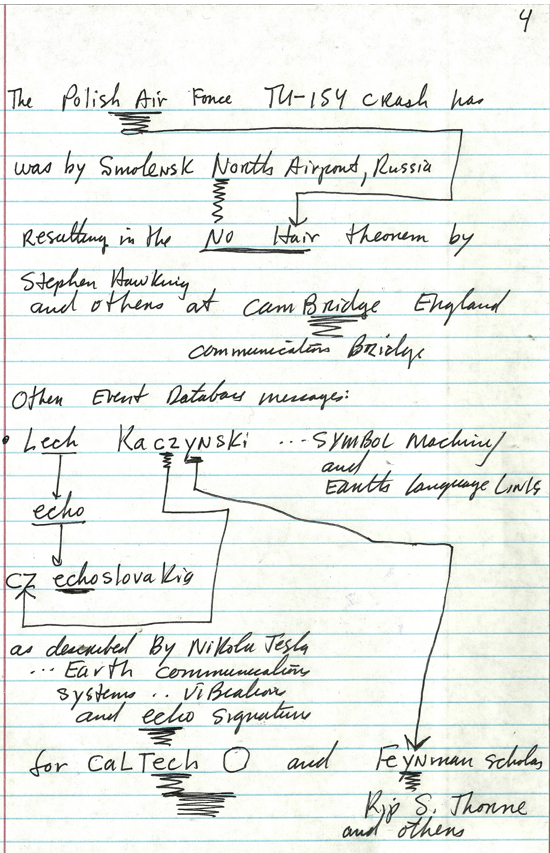 4
The Polish Air Force TU-154 crash has
was by Smolensk North Airport, Russia
resulting in the No Hair theorem by
Stephen Hawking
and others at camBridge England
communications Bridge
Other Event Database messages:
• Lech Kaczynski ... SYMBOL Machine/
and
Earth Language Links
echo
CZ echoslovakia
as described By Nikola Tesla
... Earth communication
systems .. ViBrations
and echo signature
for CaLTech O and Feynman scholar
Kip S. Thorne
and others